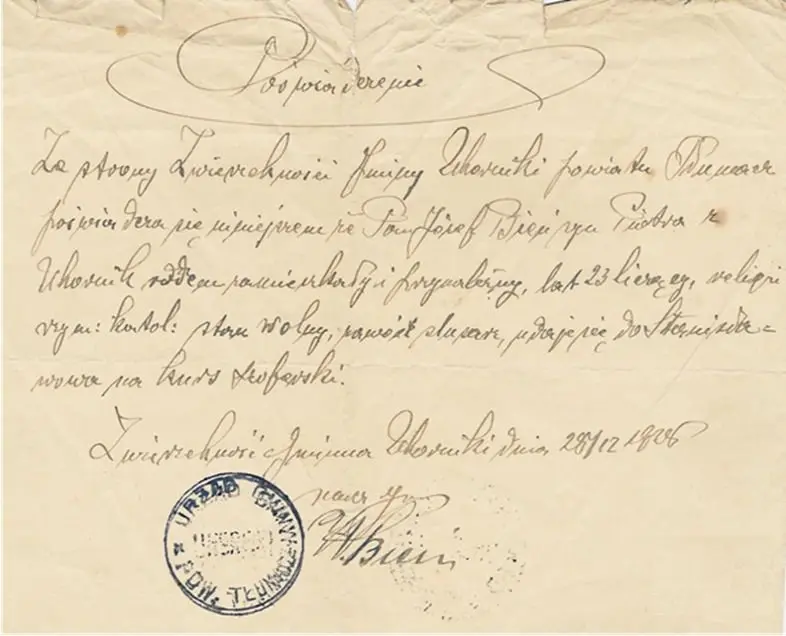 Poświadczenie
Ze strony Zwierzchności Gminy Uhorniki powiatu Tłumacz
poświadcza się niniejszem że Pan Józef Bień syn Piotra z
Uhornik rodem zamieszkały i przynależny, lat 23 liczący, religii
rzym: katol: stan wolny, zawód ślusarz, udaje się do Stanisła-
wowa na kurs szoferski.
Zwierzchność Gminna Uhorniki dnia 28/12 1926
nacz gm
W. Bień
URZĄD GMINY
POW. TŁUMACZ